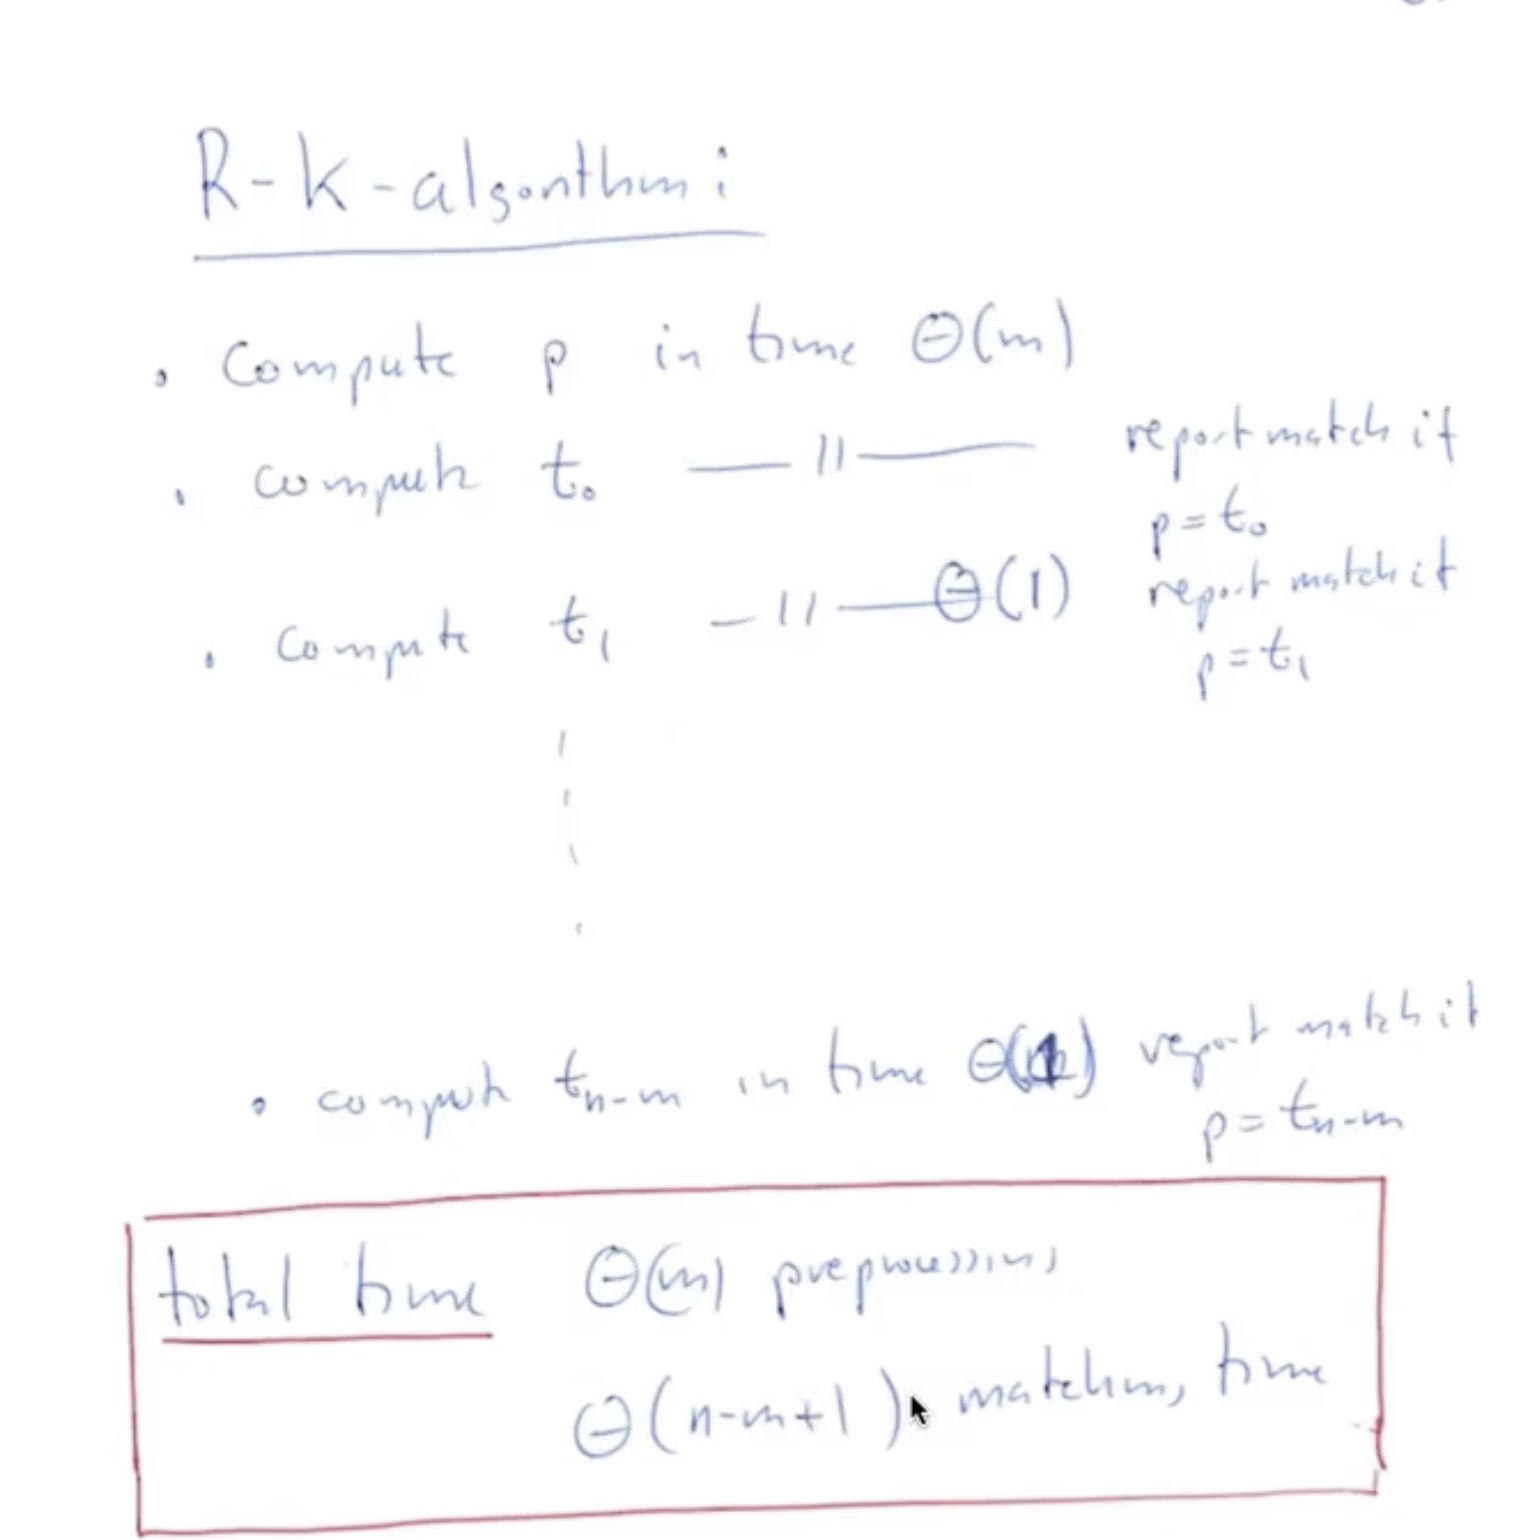 R-K-algorithm:
• Compute p in time Θ(m)
• compute t₀ — 11 — report match if
p = t₀
• Compute t₁ — 11 — Θ(1) report match if
p = t₁
• compute tₙ₋ₘ in time Θ(1) report match if
p = tₙ₋ₘ
total time Θ(m) preprocessing
Θ(n-m+1) matching time